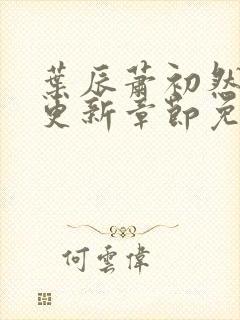 葉辰蕭初然
更新章節免
何雲偉